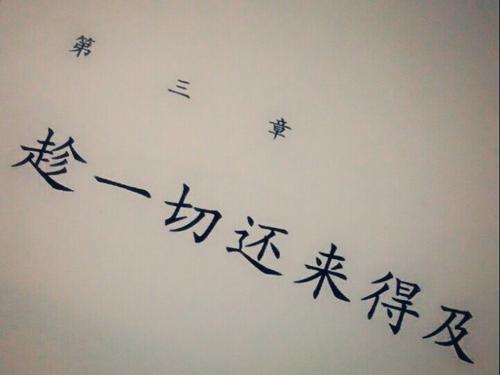 第三章
趁一切还来得及